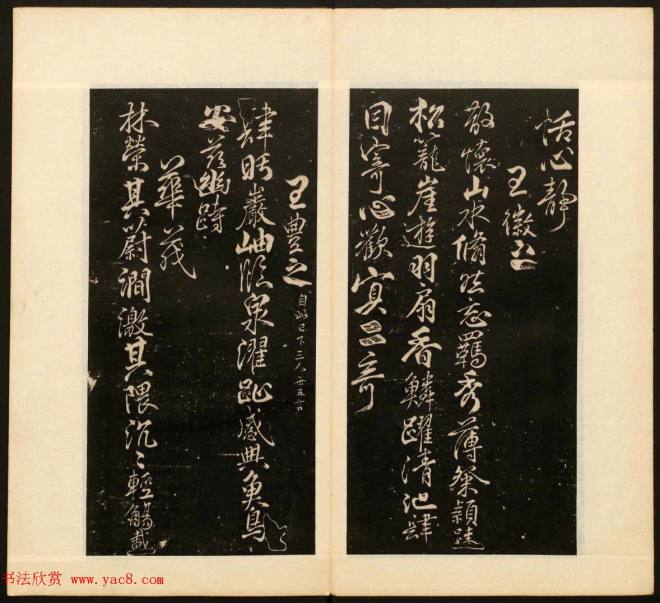 恬心靜
王徽之
散懷山水翛然忘羈秀薄粲穎疎
松籠崖遊羽扇香鱗躍清池歸
目寄心歡冥二奇
王豐之
自此已下三人無五言
肆眄巖岫臨泉濯趾感興魚鳥
安茲幽跱
華茂
林榮其蔚澗激其隈汎〻輕觴載
书法欣赏 www.yac8.com